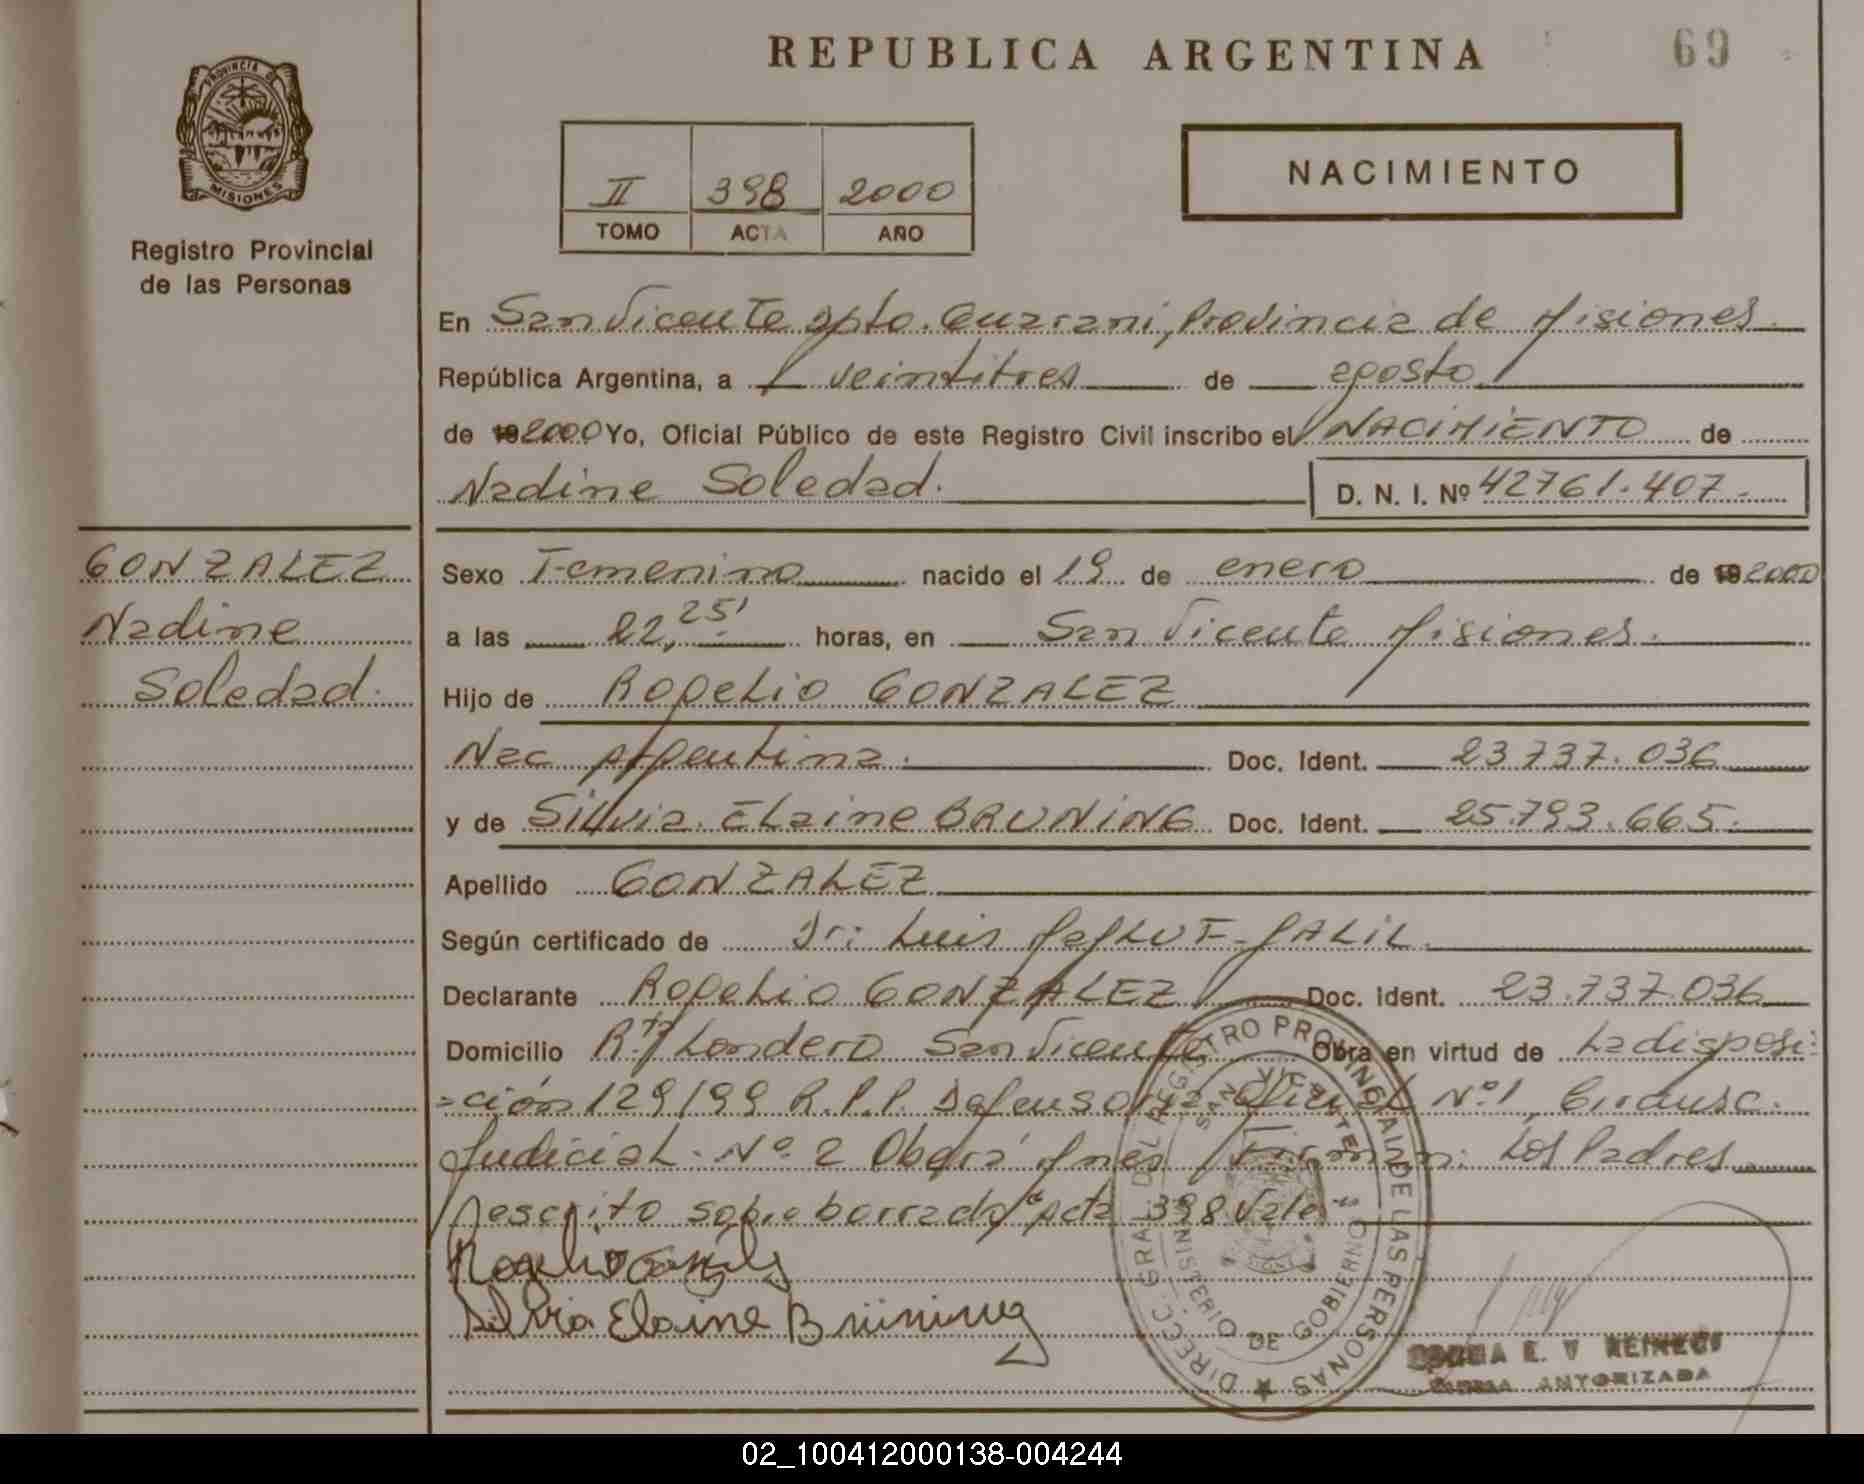 REPUBLICA ARGENTINA
69
PROVINCIA DE
MISIONES
Registro Provincial
de las Personas
II 398 2000
TOMO ACTA AÑO
NACIMIENTO
En San Vicente Dpto. Guarani, Provincia de Misiones.
República Argentina, a veintitres de agosto
de 19 2000 Yo, Oficial Público de este Registro Civil inscribo el NACIMIENTO de
Nadine Soledad.
D. N. I. Nº 42761.407.
GONZALEZ
Nadine
Soledad.
Sexo Femenino nacido el 19 de enero de 19 2000
a las 22,25' horas, en San Vicente Misiones.
Hijo de Rogelio GONZALEZ
Nac Argentina. Doc. Ident. 23.737.036
y de Silvia Elaine BRUNING Doc. Ident. 25.793.665.
Apellido GONZALEZ
Según certificado de Dr: Luis JALIL
Declarante Rogelio GONZALEZ Doc. Ident. 23.737.036
Domicilio Londero San Vicente Obra en virtud de La disposi-
=ción 129/99 R.P.P. Defensoria Oficial Nº1, Circunsc.
Judicial Nº 2 Oberá Mnes Firman: Los Padres
sobre borrado "Acta 398 Vale"
Rogelio
Silvia Elaine Brüning
DIRECC. GRAL. DEL REGISTRO PROVINCIAL DE LAS PERSONAS
SAN VICENTE
MINISTERIO DE GOBIERNO
E. V
FIRMA AUTORIZADA
02_100412000138-004244